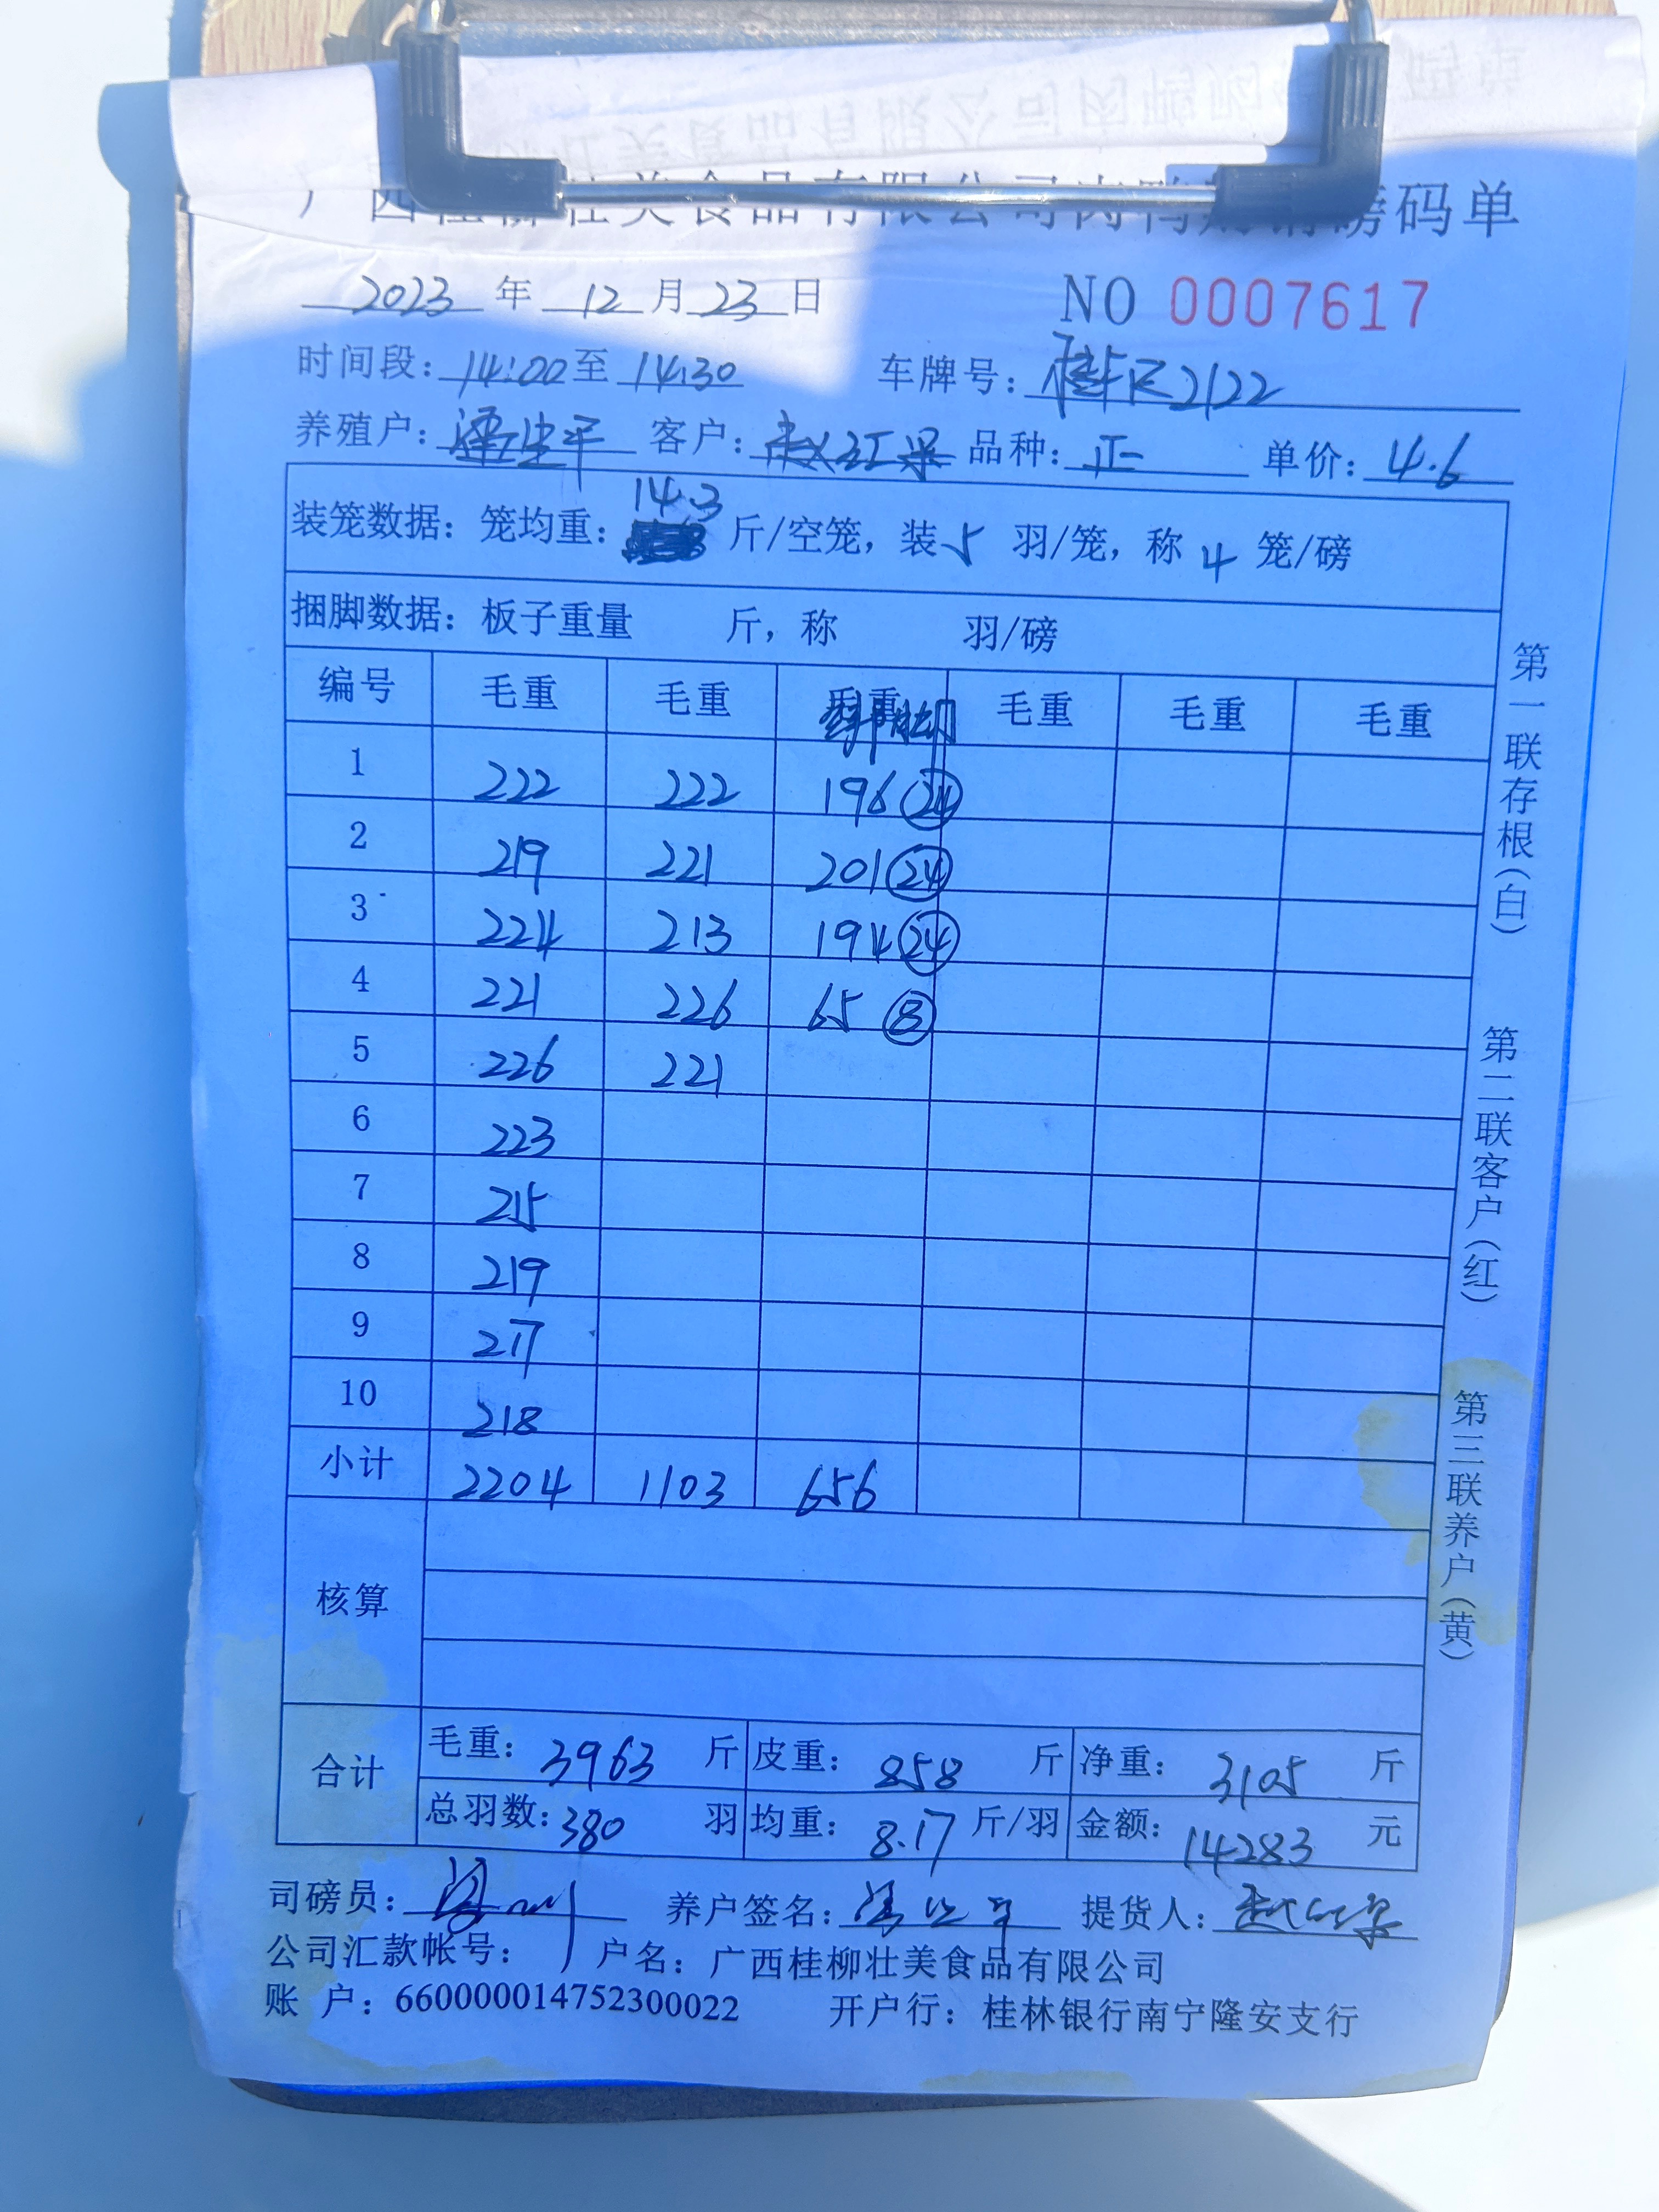 广西桂柳壮美食品有限公司肉鸭购销磅码单
2023 年 12 月 23 日 NO 0007617
时间段: 14:00 至 14:30 车牌号: 2122
养殖户: 平 客户: 赵红 品种: 正 单价: 4.6
14.3
装笼数据: 笼均重: 斤/空笼, 装 5 羽/笼, 称 4 笼/磅
捆脚数据: 板子重量 斤, 称 羽/磅
编号 毛重 毛重 毛重 毛重 毛重 毛重
1 222 222 196 24
2 219 221 201 24
3 224 213 194 24
4 221 226 65 8
5 226 221
6 223
7 215
8 219
9 217
10 218
小计 2204 1103 656
核算
合计
毛重: 3963 斤 皮重: 858 斤 净重: 3105 斤
总羽数: 380 羽 均重: 8.17 斤/羽 金额: 14283 元
司磅员: 养户签名: 提货人: 赵红
公司汇款帐号: 户名: 广西桂柳壮美食品有限公司
账 户: 660000014752300022 开户行: 桂林银行南宁隆安支行
第一联存根(白) 第二联客户(红) 第三联养户(黄)